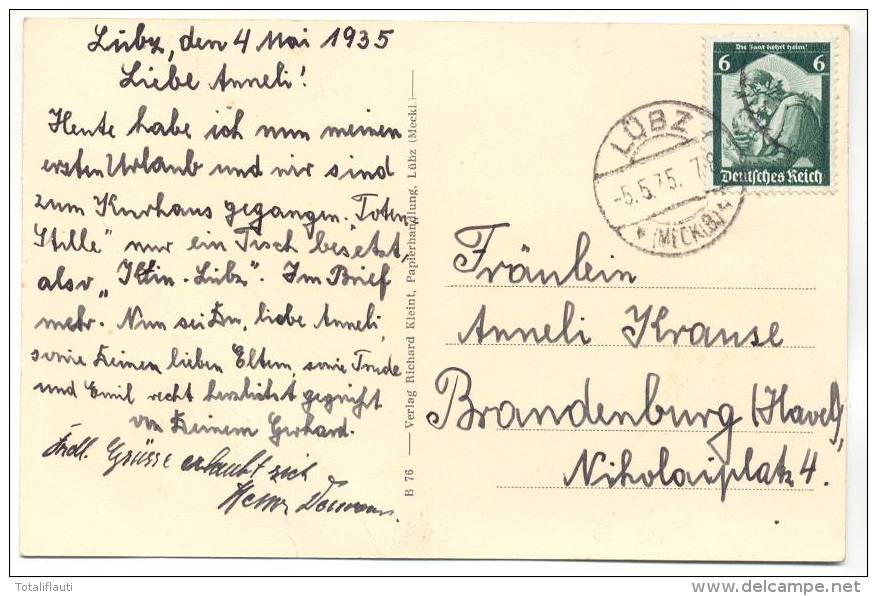 Lübz, den 4 Mai 1935
Liebe Anneli!
Heute habe ich nun meinen
ersten Urlaub und wir sind
zum Kurhaus gegangen. Toten
Stille" nur ein Tisch besetzt,
also Lübz". Im Brief
mehr. Nun sei Du, liebe Anneli,
sowie Deinen lieben Eltern, sowie Trude
und Emil recht herzlichst gegrüßt
von Deinem Gerhard.
Frdl. Grüsse erlaubt sich
B 76 — Verlag Richard Kleint, Papierhandlung, Lübz (Meckl.)—
Die Saar kehrt heim!
6 6
Deutsches Reich
LÜBZ
-5.5.35.
(MECKLB)
Fräulein
Anneli Krause
Brandenburg (Havel),
Nikolaiplatz 4.
Totaliflauti
www.delcampe.net